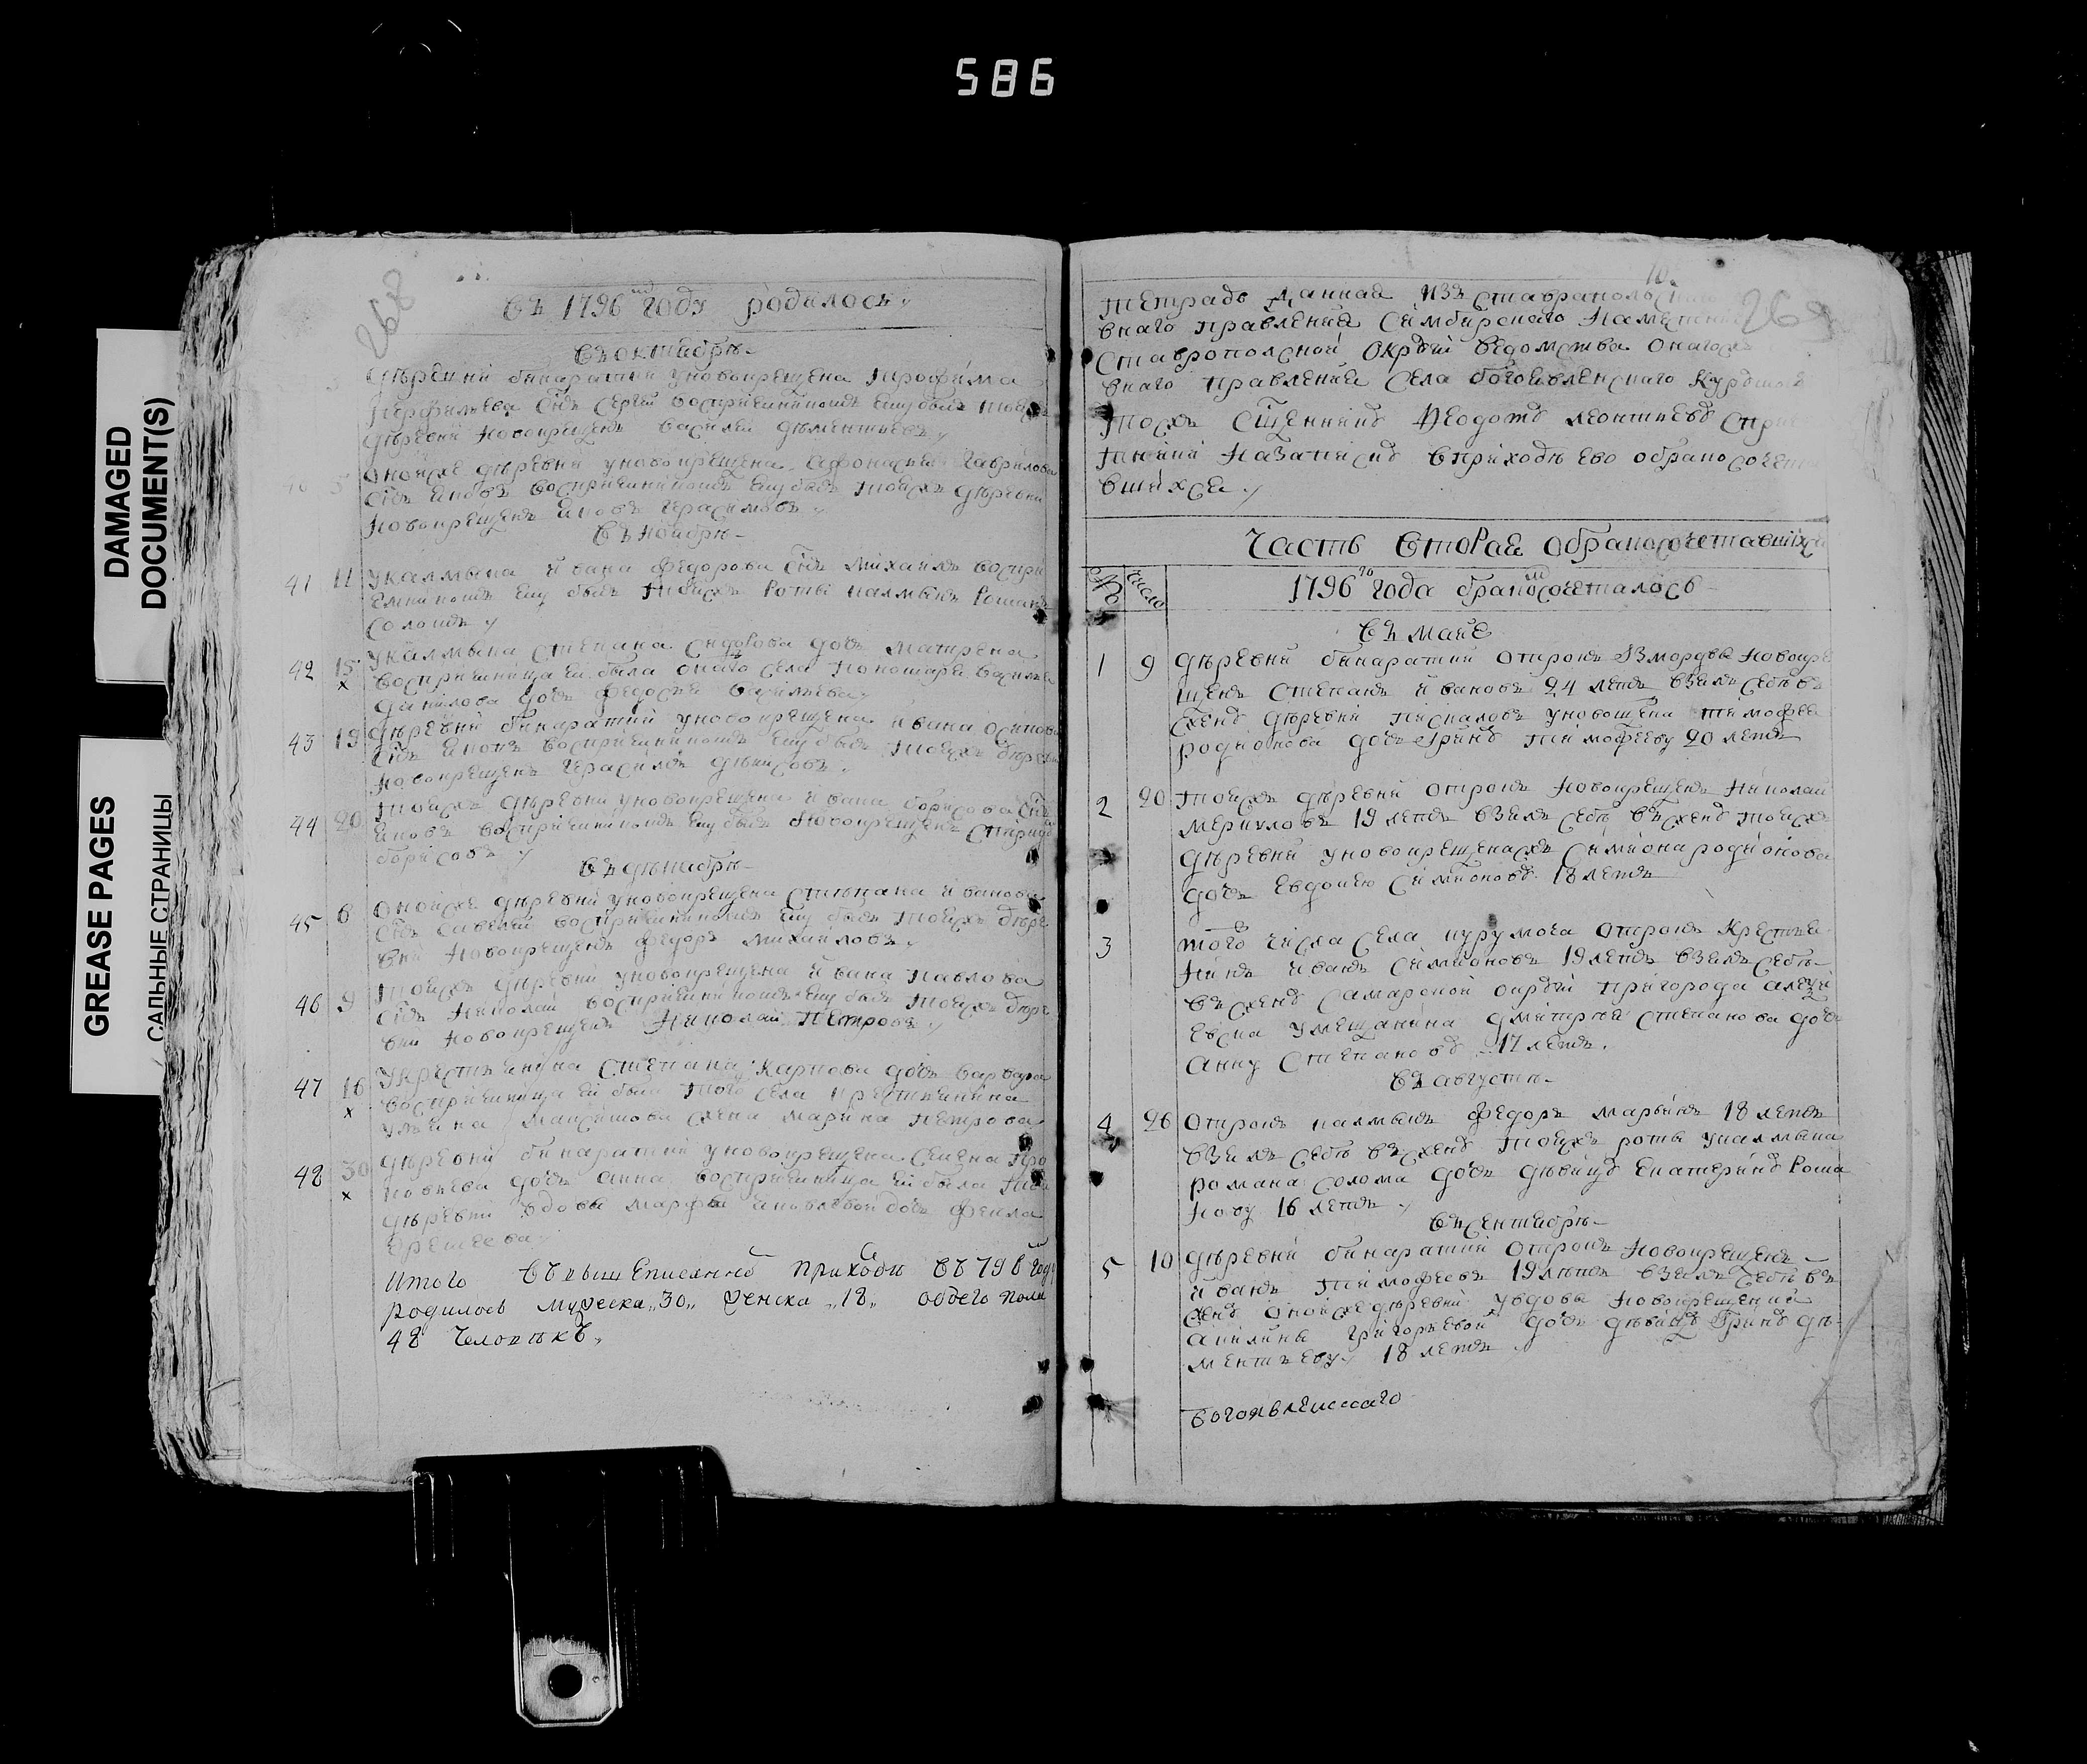 586
DAMAGED
DOCUMENT(S)
GREASE PAGES
САЛЬНЫЕ СТРАНИЦЫ
268
въ 1796 году родилось
въ октябрѣ
деревни бинаратки у новокрещена Трофима
деревни новокрещенъ василей дементьевъ
оной же деревни у новокрещена Афонасья Гаврилова
снъ яковъ восприемникомъ ему былъ той же деревни
новокрещенъ яковъ Герасимовъ
въ ноябрѣ
41 11 у калмыка ивана федорова снъ михаилъ воспри
емникомъ ему былъ той же роты калмыкъ Романъ
соломъ
42 15 у калмыка степана сидорова дочь матрена
x восприемница ей была онаго села пономаря василья
данилова дочь федосья васильева
43 19 деревни бинаратки у новокрещена ивана осипова
новокрещенъ Герасимъ денисовъ
44 20 той же деревни у новокрещена ивана борисова снъ
яковъ восприемникомъ ему былъ новокрещенъ
борисовъ
въ декабрѣ
45 6 оной же деревни у новокрещена степана иванова
снъ савелей восприемникомъ ему былъ той же дере
вни новокрещенъ федоръ михайловъ
46 9 той же деревни у новокрещена ивана павлова
снъ николай восприемникомъ ему былъ той же дере
вни новокрещенъ николай петровъ
47 16 у крестьянина степана карпова дочь варвара
x восприемница ей была того села крестьянина
ульяна максимова жена марина петрова
48 30 деревни бинаратки у новокрещена семена про
x кофьева дочь анна восприемница ей была
деревни вдовы марфы яковлевой дочь фекла
еремеева
итого въ вышеписанной приходе въ 796 году
родилось мужеска „30„ женска „18„ обоего пола
48 человѣкъ„
10.
269
Тетрадь данная изъ ставрополь
внаго правления Симбирскаго наместни
Ставропольской округи ведомства онаго
внаго правления села богоявленскаго Курумоч
тожъ сщенникъ Феодотъ леонтьевъ
назаписку в приходе ево о бракосочета
вшихся
Часть вторая о бракосочетавшихся
№ число 1796го года бракосочеталось
въ маие
1 9 деревни бинаратки отрокъ из мордвы новокре
щенъ степанъ ивановъ 24 летъ взялъ себе в
жену деревни пискаловъ у новокщена тимофея
родионова дочь Ирину тимофееву 20 летъ
2 20 той же деревни отрокъ новокрещенъ николай
меркуловъ 19 летъ взялъ себе в жену той же
деревни у новокрещена жъ симиона родионова
дочь Евдокею симионову 18 летъ
3 того числа села курумоча отрокъ крестья
нинъ иванъ симионовъ 19 летъ взялъ себе
въ жену самарской округи пригорода алекси
евска у мещанина дмитрия степанова дочь
анну степанову 17 летъ.
въ августе
4 26 отрокъ калмыкъ федоръ марвинъ 18 летъ
взялъ себе в жену той же роты у калмыка
романа солома дочь девицу екатерину рома
нову 16 летъ
въ сентябрѣ
5 10 деревни бинаратки отрокъ новокрещенъ
иванъ тимофеевъ 19 летъ взялъ себе въ
жену оной же деревни у вдовы новокрещенки
акилины григорьевой дочь девицу Ирину де
ментьеву 18 летъ
богоявленскаго